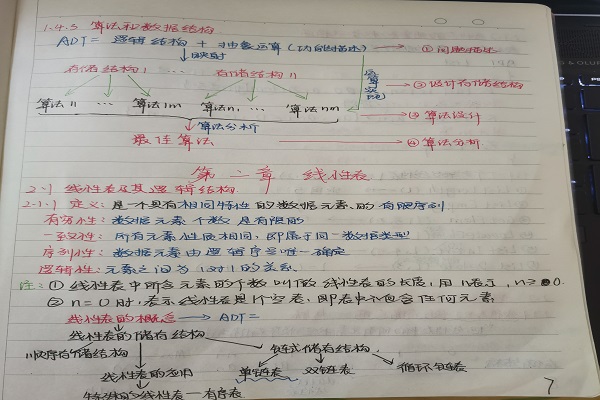 1.4.3 算法和数据结构
ADT = 逻辑结构 + 抽象运算(功能描述) → ①问题描述
↓映射
存储结构1 … 存储结构n → ②设计存储结构
算法11 … 算法1m 算法n1 … 算法nm → ③算法设计
↓算法分析
最佳算法 → ④算法分析
第二章 线性表
2.1 线性表及其逻辑结构
2.1.1 定义: 是一个具有相同特性的数据元素的有限序列
有穷性: 数据元素个数是有限的
一致性: 所有元素性质相同,即属于同一数据类型
序列性: 数据元素由逻辑序号唯一确定
逻辑性: 元素之间为1对1的关系
注: ① 线性表中所含元素的个数叫做线性表的长度,用n表示, n≥0.
② n=0时,表示线性表是个空表,即表中不包含任何元素
线性表的概念 → ADT=
线性表的储存结构
顺序存储结构 链式储存结构
线性表的应用 单链表 双链表 循环链表
特殊的线性表—有序表
7